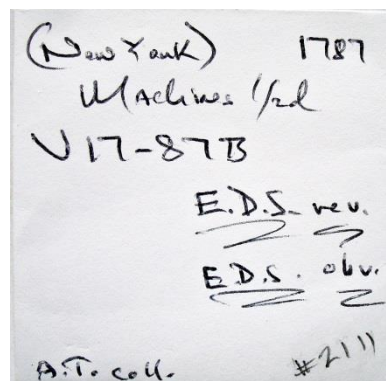 (New York) 1787
Machines 1/2d
V 17-87B
E.D.S. rev.
E.D.S. obv.
A.T. coll. #2111